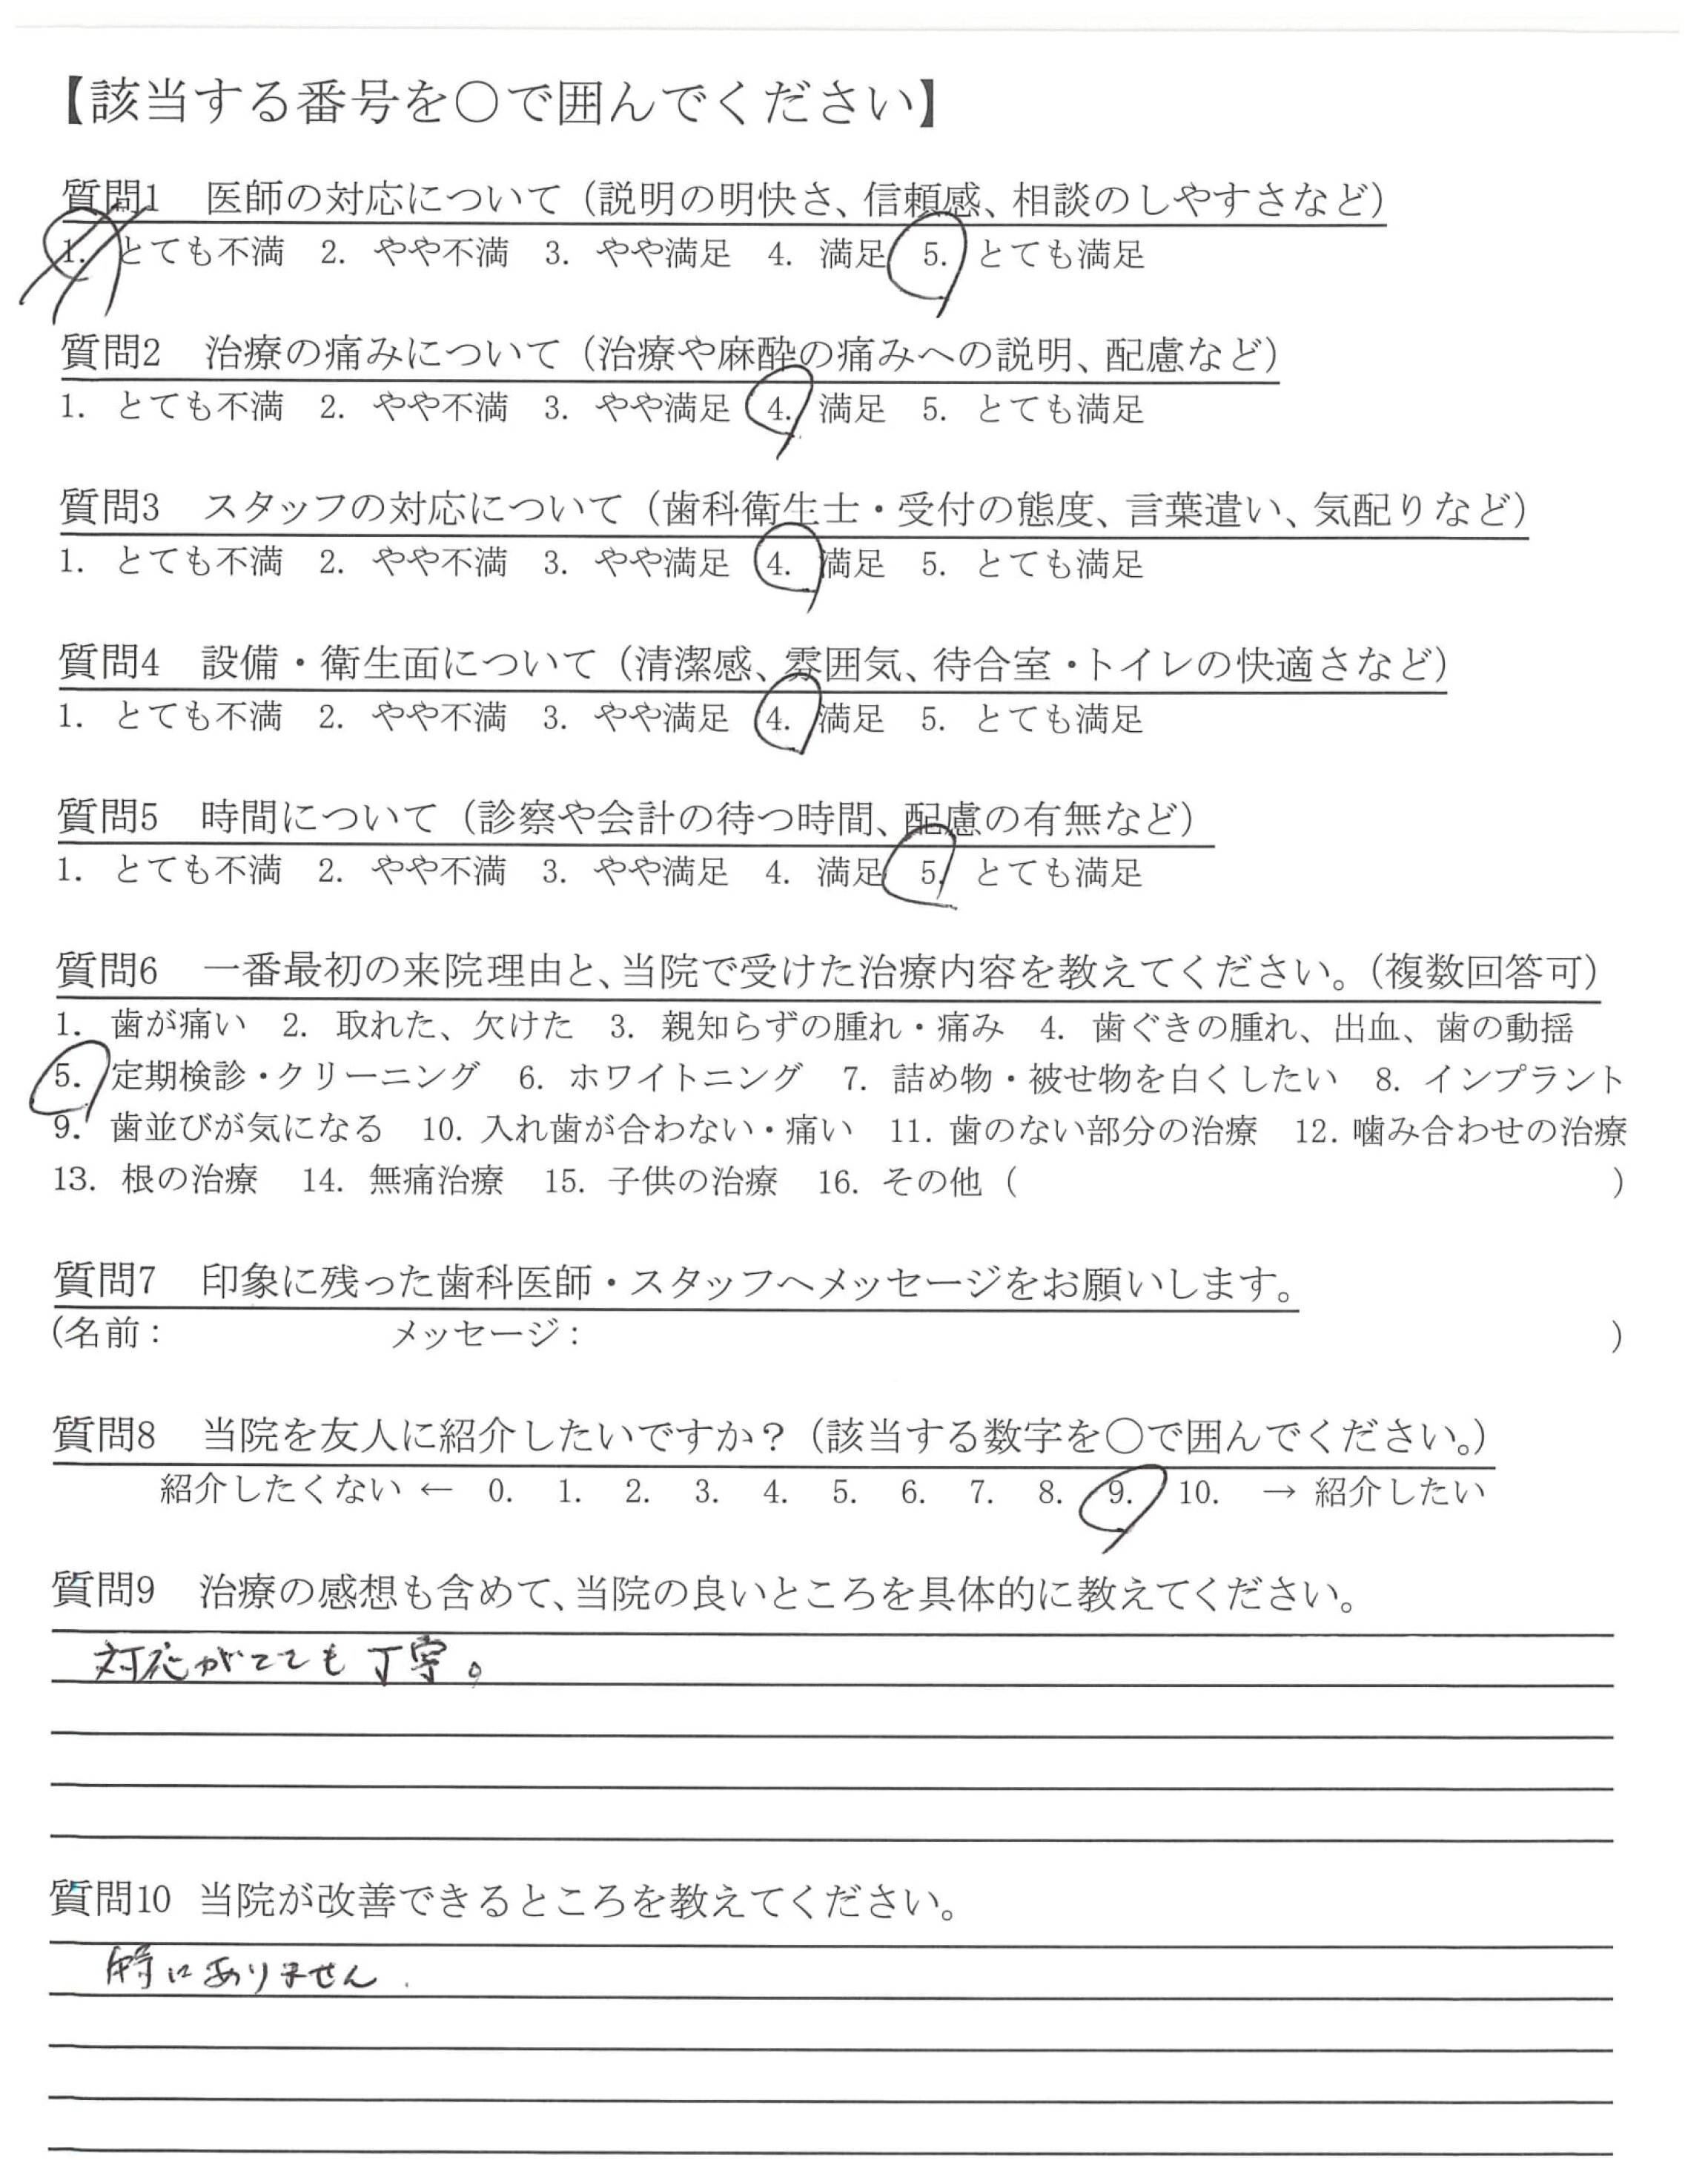 【該当する番号を〇で囲んでください】
質問1　医師の対応について（説明の明快さ、信頼感、相談のしやすさなど）
1.　とても不満　2.　やや不満　3.　やや満足　4.　満足　5.　とても満足
質問2　治療の痛みについて（治療や麻酔の痛みへの説明、配慮など）
1.　とても不満　2.　やや不満　3.　やや満足　4.　満足　5.　とても満足
質問3　スタッフの対応について（歯科衛生士・受付の態度、言葉遣い、気配りなど）
1.　とても不満　2.　やや不満　3.　やや満足　4.　満足　5.　とても満足
質問4　設備・衛生面について（清潔感、雰囲気、待合室・トイレの快適さなど）
1.　とても不満　2.　やや不満　3.　やや満足　4.　満足　5.　とても満足
質問5　時間について（診察や会計の待つ時間、配慮の有無など）
1.　とても不満　2.　やや不満　3.　やや満足　4.　満足　5.　とても満足
質問6　一番最初の来院理由と、当院で受けた治療内容を教えてください。（複数回答可）
1.　歯が痛い　2.　取れた、欠けた　3.　親知らずの腫れ・痛み　4.　歯ぐきの腫れ、出血、歯の動揺
5.　定期検診・クリーニング　6.　ホワイトニング　7.　詰め物・被せ物を白くしたい　8.　インプラント
9.　歯並びが気になる　10. 入れ歯が合わない・痛い　11. 歯のない部分の治療　12. 噛み合わせの治療
13.　根の治療　14.　無痛治療　15.　子供の治療　16.　その他（　　　　　）
質問7　印象に残った歯科医師・スタッフへメッセージをお願いします。
（名前：　　　　　メッセージ：　　　　　）
質問8　当院を友人に紹介したいですか？（該当する数字を〇で囲んでください。）
紹介したくない ← 0.　1.　2.　3.　4.　5.　6.　7.　8.　9.　10.　→ 紹介したい
質問9　治療の感想も含めて、当院の良いところを具体的に教えてください。
対応がとても丁寧。
質問10　当院が改善できるところを教えてください。
特にありません.